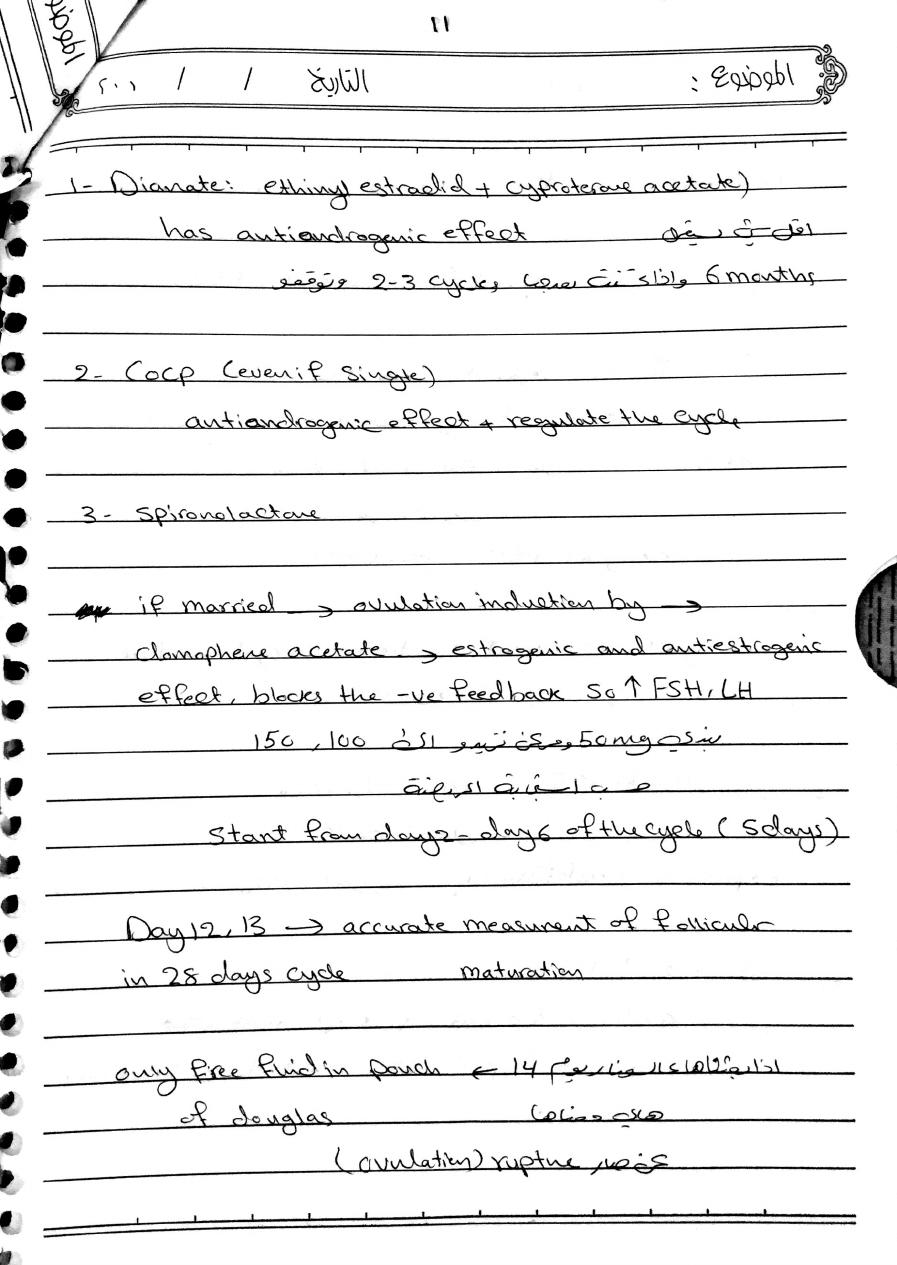 11
الموضوع
الموضوع : التاريخ / / ٢٠٠١
1- Dianate: ethinyl estradiol + cyproterone acetate)
has antiandrogenic effect اقل شي
6 months واذا كانت وتوقفو 2-3 cycles
2- COCP (even if single)
antiandrogenic effect + regulate the cycle
3- Spironolactone
if married → ovulation induction by →
clomophene acetate → estrogenic and antiestrogenic
effect, blocks the -ve feedback so ↑ FSH, LH
50mg وممكن نزيدو الى 100, 150
حسب استجابة المريضة
Start from day 2 - day 6 of the cycle (5 days)
Day 12, 13 → accurate measurment of follicular
in 28 days cycle maturation
اذا يوم 14 ← only free fluid in pouch
هذي معناها of douglas
rupture (ovulation)